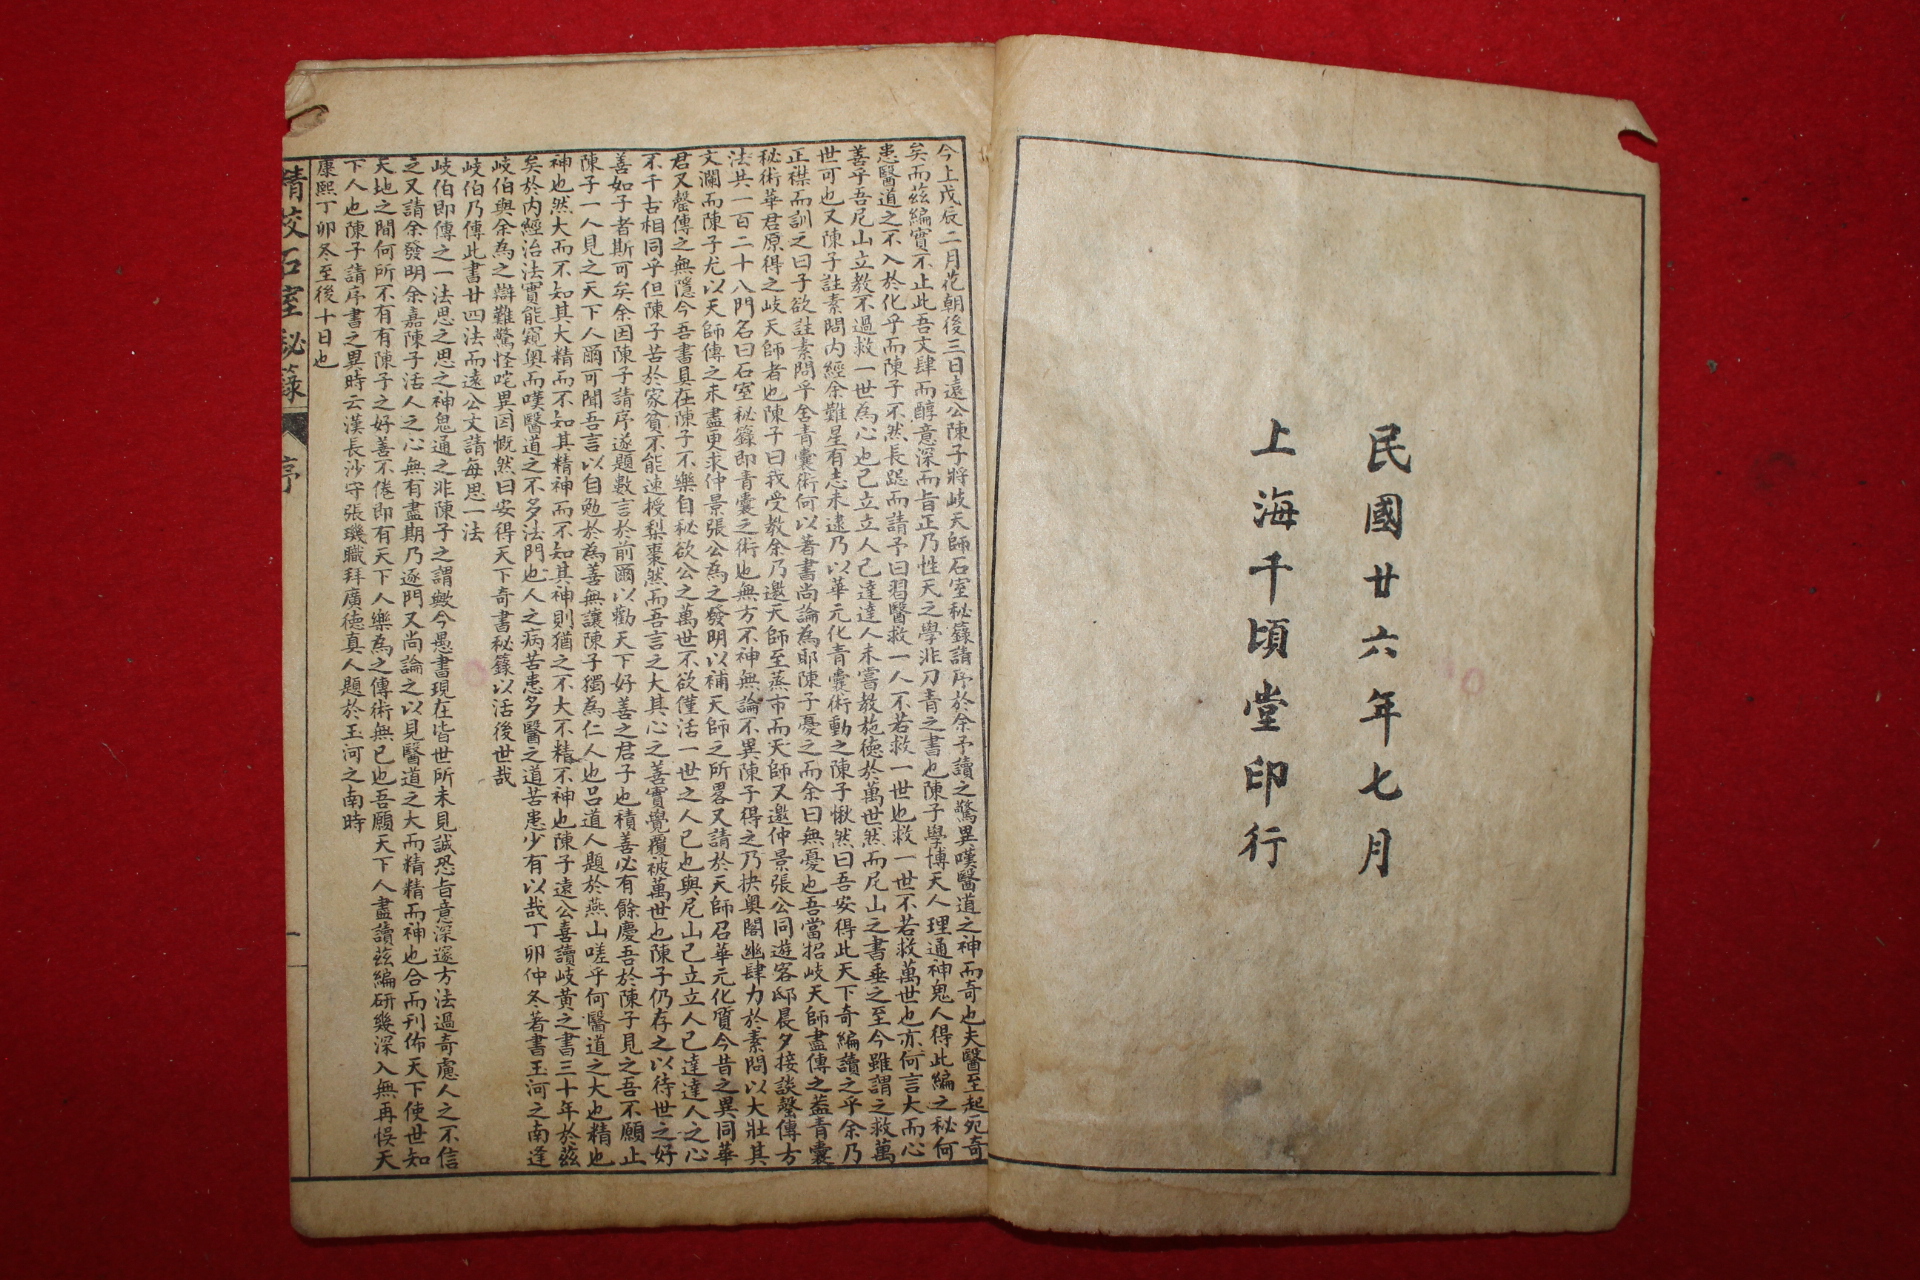 民國廿六年七月
上海千頃堂印行
今上戊辰二月花朝後三日遠公陳子將岐天師石室秘籙請序於余予讀之驚異嘆醫道之神而奇也夫醫至起死奇
矣而茲編實不止此吾文肆而醇意深而旨正乃性天之學非刀青之書也陳子學博天人理通神鬼人得此編之秘何
患醫道之不入於化乎而陳子不然長跽而請予曰習醫救一人不若救一世也救一世不若救萬世也亦何言大而心
善乎吾尼山立教不過救一世為心也己立立人己達達人未嘗教施德於萬世然而尼山之書垂之至今雖謂之救萬
世可也又陳子註素問內經余難星有志未逮乃以華元化青囊術動之陳子愀然曰吾安得此天下奇編讀之乎余乃
正襟而訓之曰子欲註素問乎舍青囊術何以著書尚論為耶陳子憂之而余曰無憂也吾當招岐天師盡傳之蓋青囊
秘術華君原得之岐天師者也陳子曰我受教余乃邀天師至燕市而天師又邀仲景張公同遊客邸晨夕接談罄傳方
法共一百二十八門名曰石室秘籙即青囊之術也無方不神無論不異陳子得之乃抉奧闡幽肆力於素問以大壯其
文瀾而陳子尤以天師傳之未盡更求仲景張公為之發明以補天師之所畧又請於天師召華元化質今昔之異同華
君又罄傳之無隱今吾書具在陳子不樂自秘欲公之萬世不欲僅活一世之人已也與尼山己立立人己達達人之心
不千古相同乎但陳子苦於家貧不能速授梨棗然而吾言之大其心之善實覺覆被萬世也陳子仍存之以待世之好
善如子者斯可矣余因陳子請序遂題數言於前爾以勸天下好善之君子也積善必有餘慶吾於陳子見之吾不願止
陳子一人見之天下人爾可聞吾言以自勉於為善無讓陳子獨為仁人也呂道人題於燕山嗟乎何醫道之大也精也
神也然大而不知其大精而不知其精神而不知其神則猶之不大不精不神也陳子遠公喜讀岐黃之書三十年於茲
矣於內經治法實能窺奧而嘆醫道之不多法門也人之病苦患多醫之道苦患少有以哉丁卯仲冬著書玉河之南逢
岐伯與余為之辯難驚怪咤異因慨然曰安得天下奇書秘籙以活後世哉
岐伯乃傳此書廿四法而遠公文請每思一法
岐伯即傳之一法思之思之神鬼通之非陳子之謂歟今愚書現在皆世所未見誠恐旨意深邃方法過奇慮人之不信
之又請余發明余嘉陳子活人之心無有盡期乃逐門又尚論之以見醫道之大而精精而神也合而刊佈天下使世知
天地之間何所不有有陳子之好善不倦即有天下人樂為之傳術無已也吾願天下人盡讀茲編研幾深入無再悮天
下人也陳子請序書之異時云漢長沙守張璣職拜廣德真人題於玉河之南時
康熙丁卯冬至後十日也
精校石室秘籙
序
一